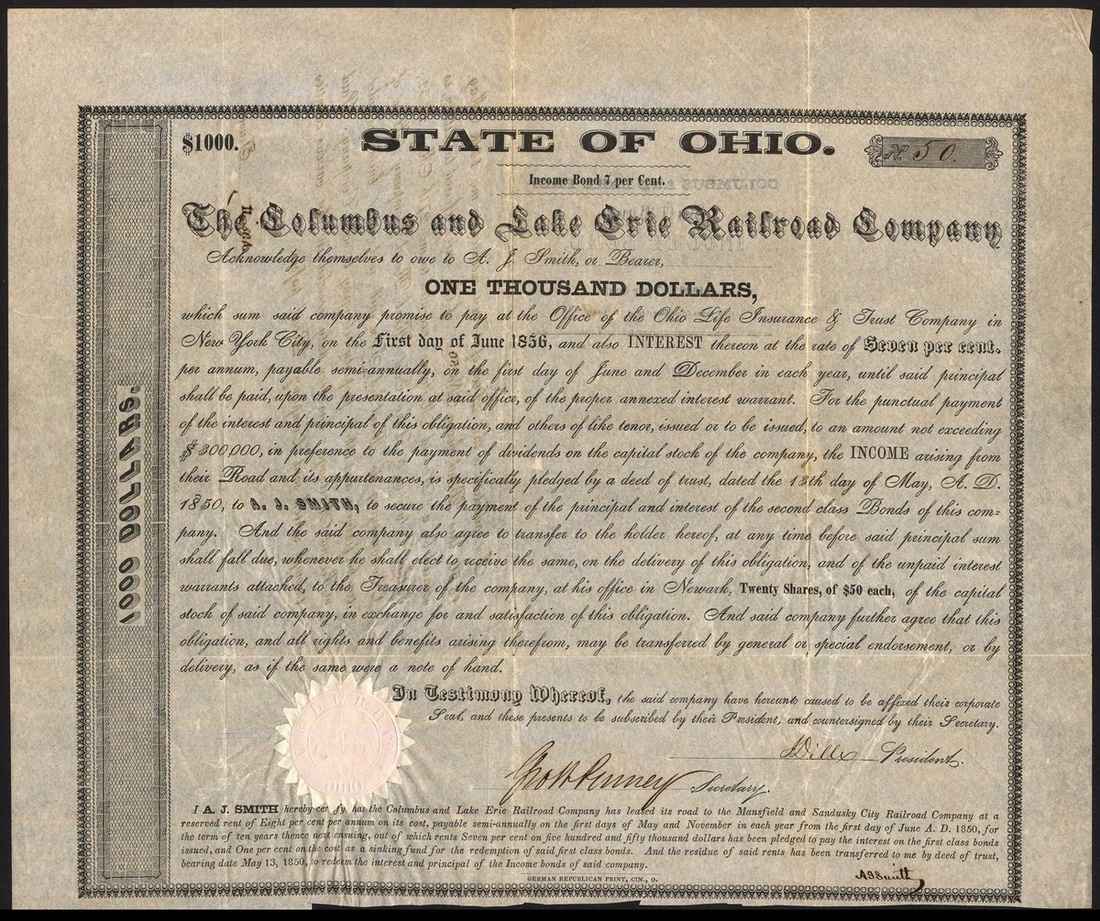 $1000.
STATE OF OHIO.
No. 50.
Income Bond 7 per Cent.
The Columbus and Lake Erie Railroad Company
Acknowledge themselves to owe to A. J. Smith, or Bearer,
ONE THOUSAND DOLLARS,
which sum said company promise to pay at the Office of the Ohio Life Insurance & Trust Company in
New York City, on the First day of June 1856, and also INTEREST thereon at the rate of Seven per cent.
per annum, payable semi-annually, on the first day of June and December in each year, until said principal
shall be paid, upon the presentation at said office, of the proper annexed interest warrant. For the punctual payment
of the interest and principal of this obligation, and others of like tenor, issued or to be issued, to an amount not exceeding
$300,000, in preference to the payment of dividends on the capital stock of the company, the INCOME arising from
their Road and its appurtenances, is specifically pledged by a deed of trust, dated the 13th day of May, A. D.
1850, to A. J. SMITH, to secure the payment of the principal and interest of the second class Bonds of this com=
pany. And the said company also agree to transfer to the holder hereof, at any time before said principal sum
shall fall due, whenever he shall elect to receive the same, on the delivery of this obligation, and of the unpaid interest
warrants attached, to the Treasurer of the company, at his office in Newark, Twenty Shares, of $50 each, of the capital
stock of said company, in exchange for and satisfaction of this obligation. And said company further agree that this
obligation, and all rights and benefits arising therefrom, may be transferred by general or special endorsement, or by
delivery, as if the same were a note of hand.
In Testimony Whereof, the said company have hereunto caused to be affixed their corporate
Seal, and these presents to be subscribed by their President, and countersigned by their Secretary.
President.
Secretary.
I A. J. SMITH hereby certify that the Columbus and Lake Erie Railroad Company has leased its road to the Mansfield and Sandusky City Railroad Company at a
reserved rent of Eight per cent per annum on its cost, payable semi-annually on the first days of May and November in each year from the first day of June A. D. 1850, for
the term of ten years thence next ensuing, out of which rents Seven per cent on five hundred and fifty thousand dollars has been pledged to pay the interest on the first class bonds
issued, and One per cent on the cost as a sinking fund for the redemption of said first class bonds. And the residue of said rents has been transferred to me by deed of trust,
bearing date May 13, 1850, to redeem the interest and principal of the Income bonds of said company.
A J Smith
GERMAN REPUBLICAN PRINT, CIN., O.
1000 DOLLARS.